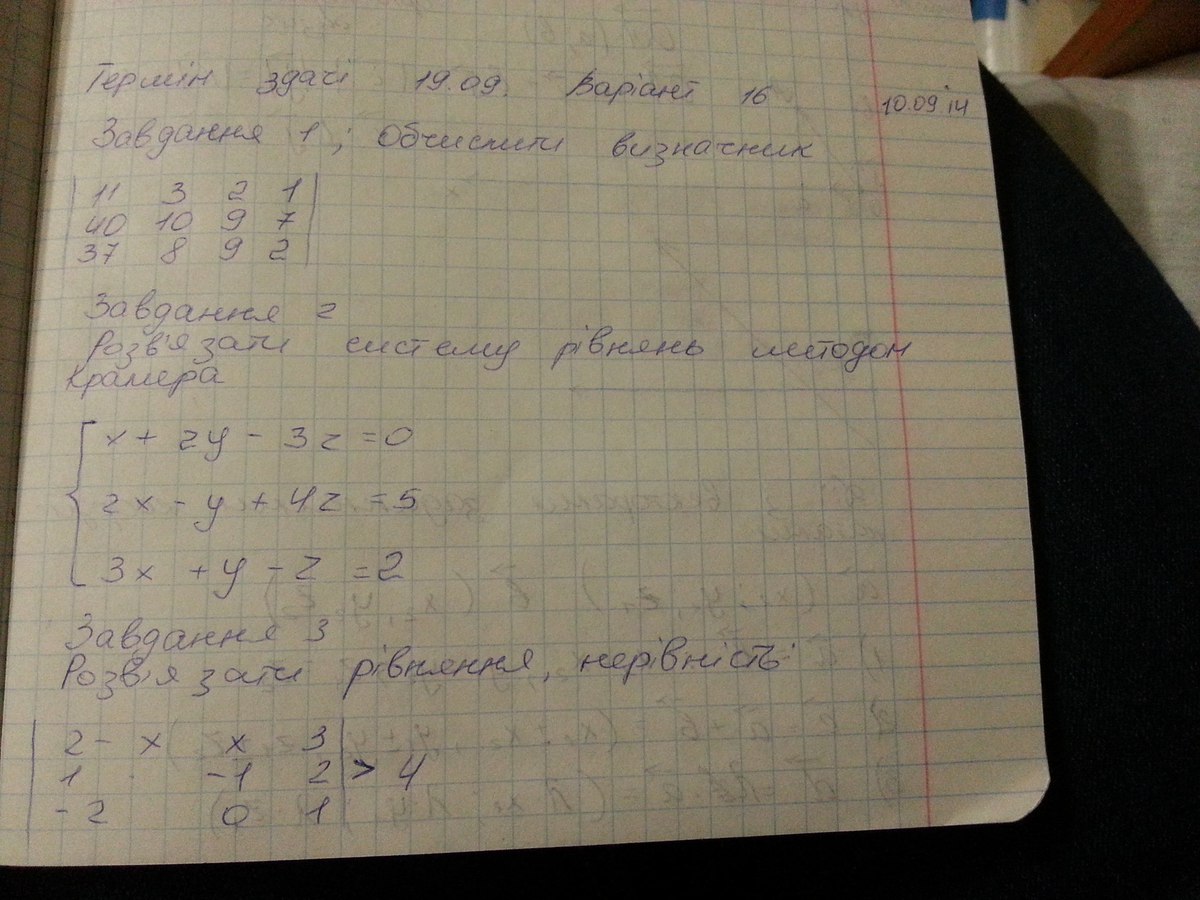 Термін здачі 19.09. Варіант 16 10.09.14
Завдання 1; Обчислити визначник
| 11 3 2 1 |
| 40 10 9 7 |
| 37 8 9 2 |
Завдання 2
Розв'язати систему рівнянь методом
Крамера
x + 2y - 3z = 0
2x - y + 4z = 5
3x + y - z = 2
Завдання 3
Розв'язати рівняння, нерівність
| 2 - x x 3 |
| 1 -1 2 | > 4
| -2 0 1 |